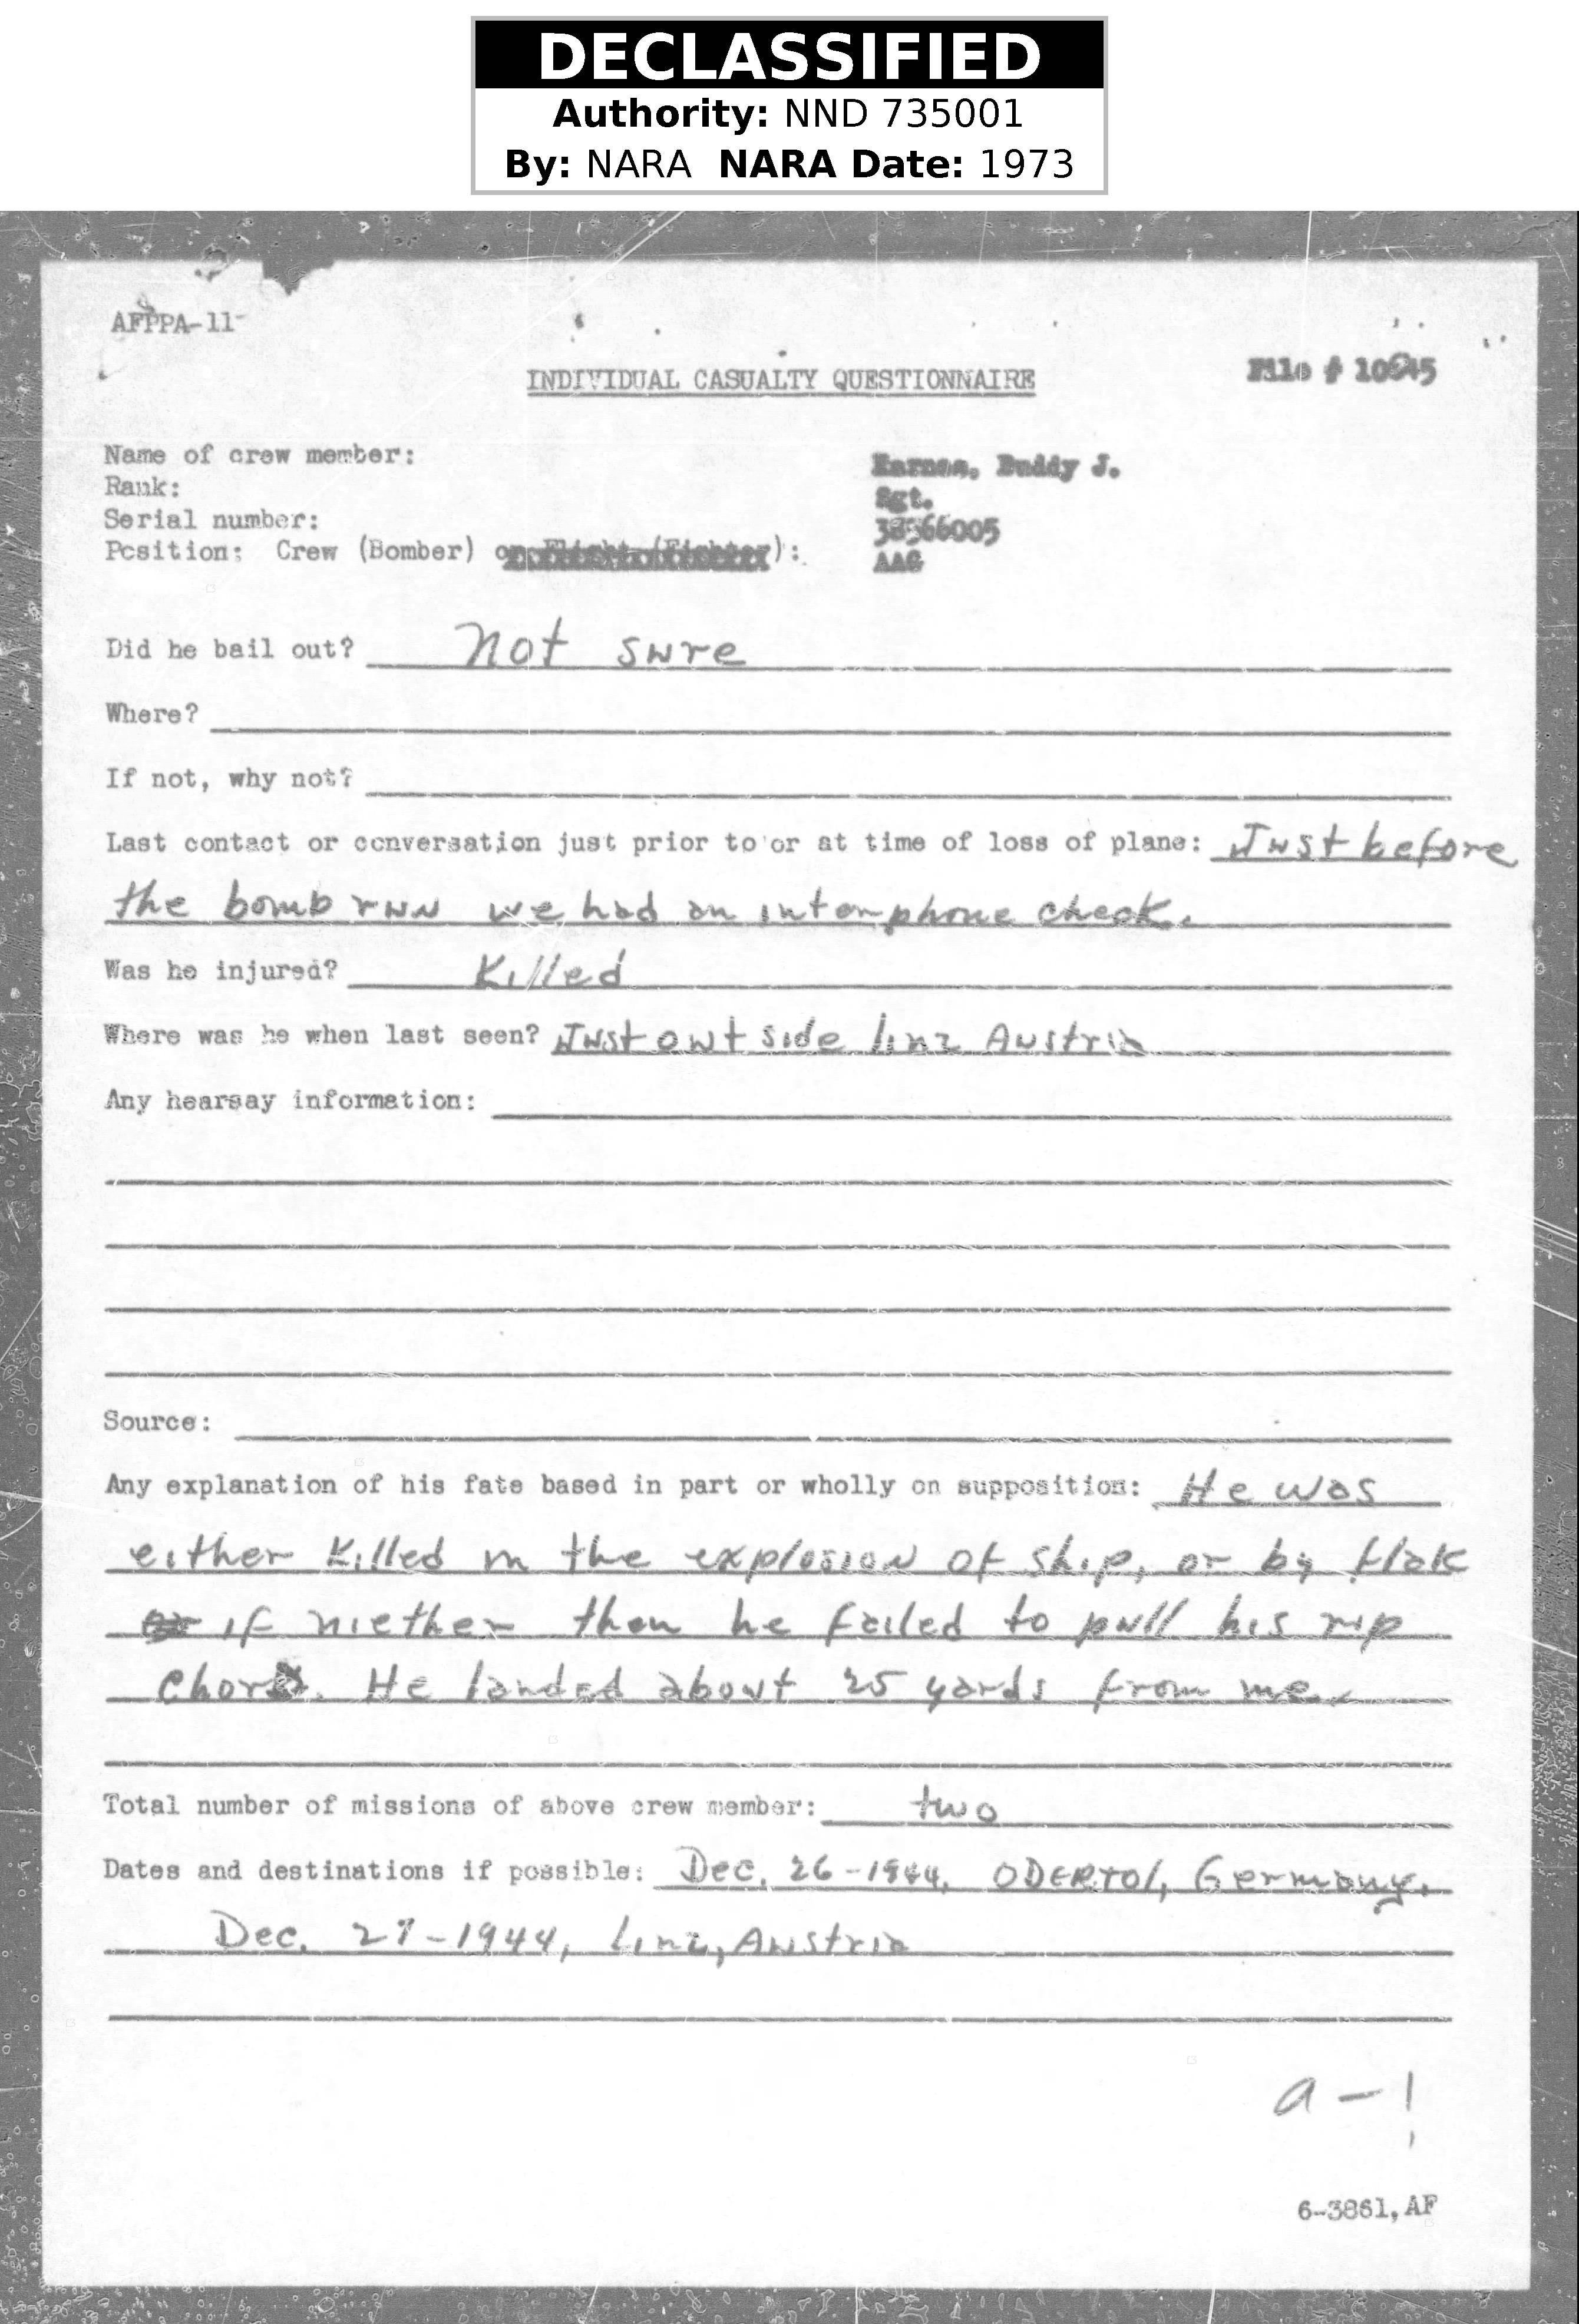 DECLASSIFIED
Authority: NND 735001
By: NARA NARA Date: 1973
AFPPA-11
INDIVIDUAL CASUALTY QUESTIONNAIRE
File # 10645
Name of crew member: Buddy J.
Rank: Sgt.
Serial number: 38566005
Position: Crew (Bomber) or Flight (Fighter): AAG
Did he bail out? Not sure
Where?
If not, why not?
Last contact or conversation just prior to or at time of loss of plane: Just before
the bomb run we had an interphone check.
Was he injured? Killed
Where was he when last seen? Just outside linz Austria
Any hearsay information:
Source:
Any explanation of his fate based in part or wholly on supposition: He was
either Killed in the explosion of ship, or by flak
or if niether then he failed to pull his rip
chord. He landed about 25 yards from me.
Total number of missions of above crew member: two
Dates and destinations if possible: Dec. 26-1944, ODERTOl, Germany.
Dec. 27-1944, Linz, Austria
a-1
6-3861, AF